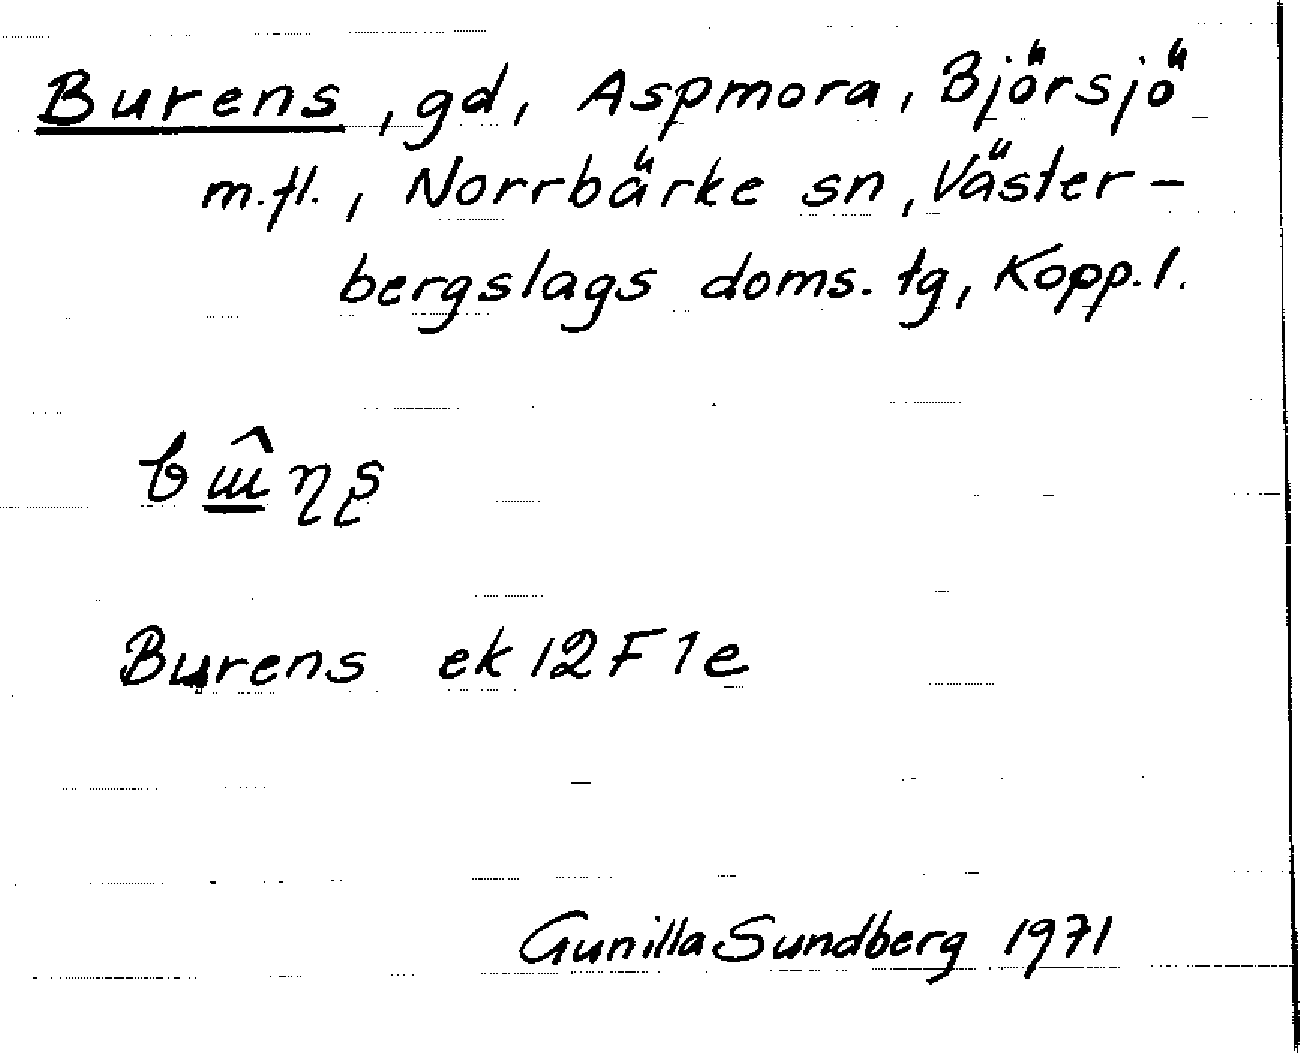 Burens, gd, Aspmora, Björsjö
m.fl., Norrbärke sn, Väster-
bergslags doms. tg, Kopp. l.
Burens ek 12 F 1 e
Gunilla Sundberg 1971